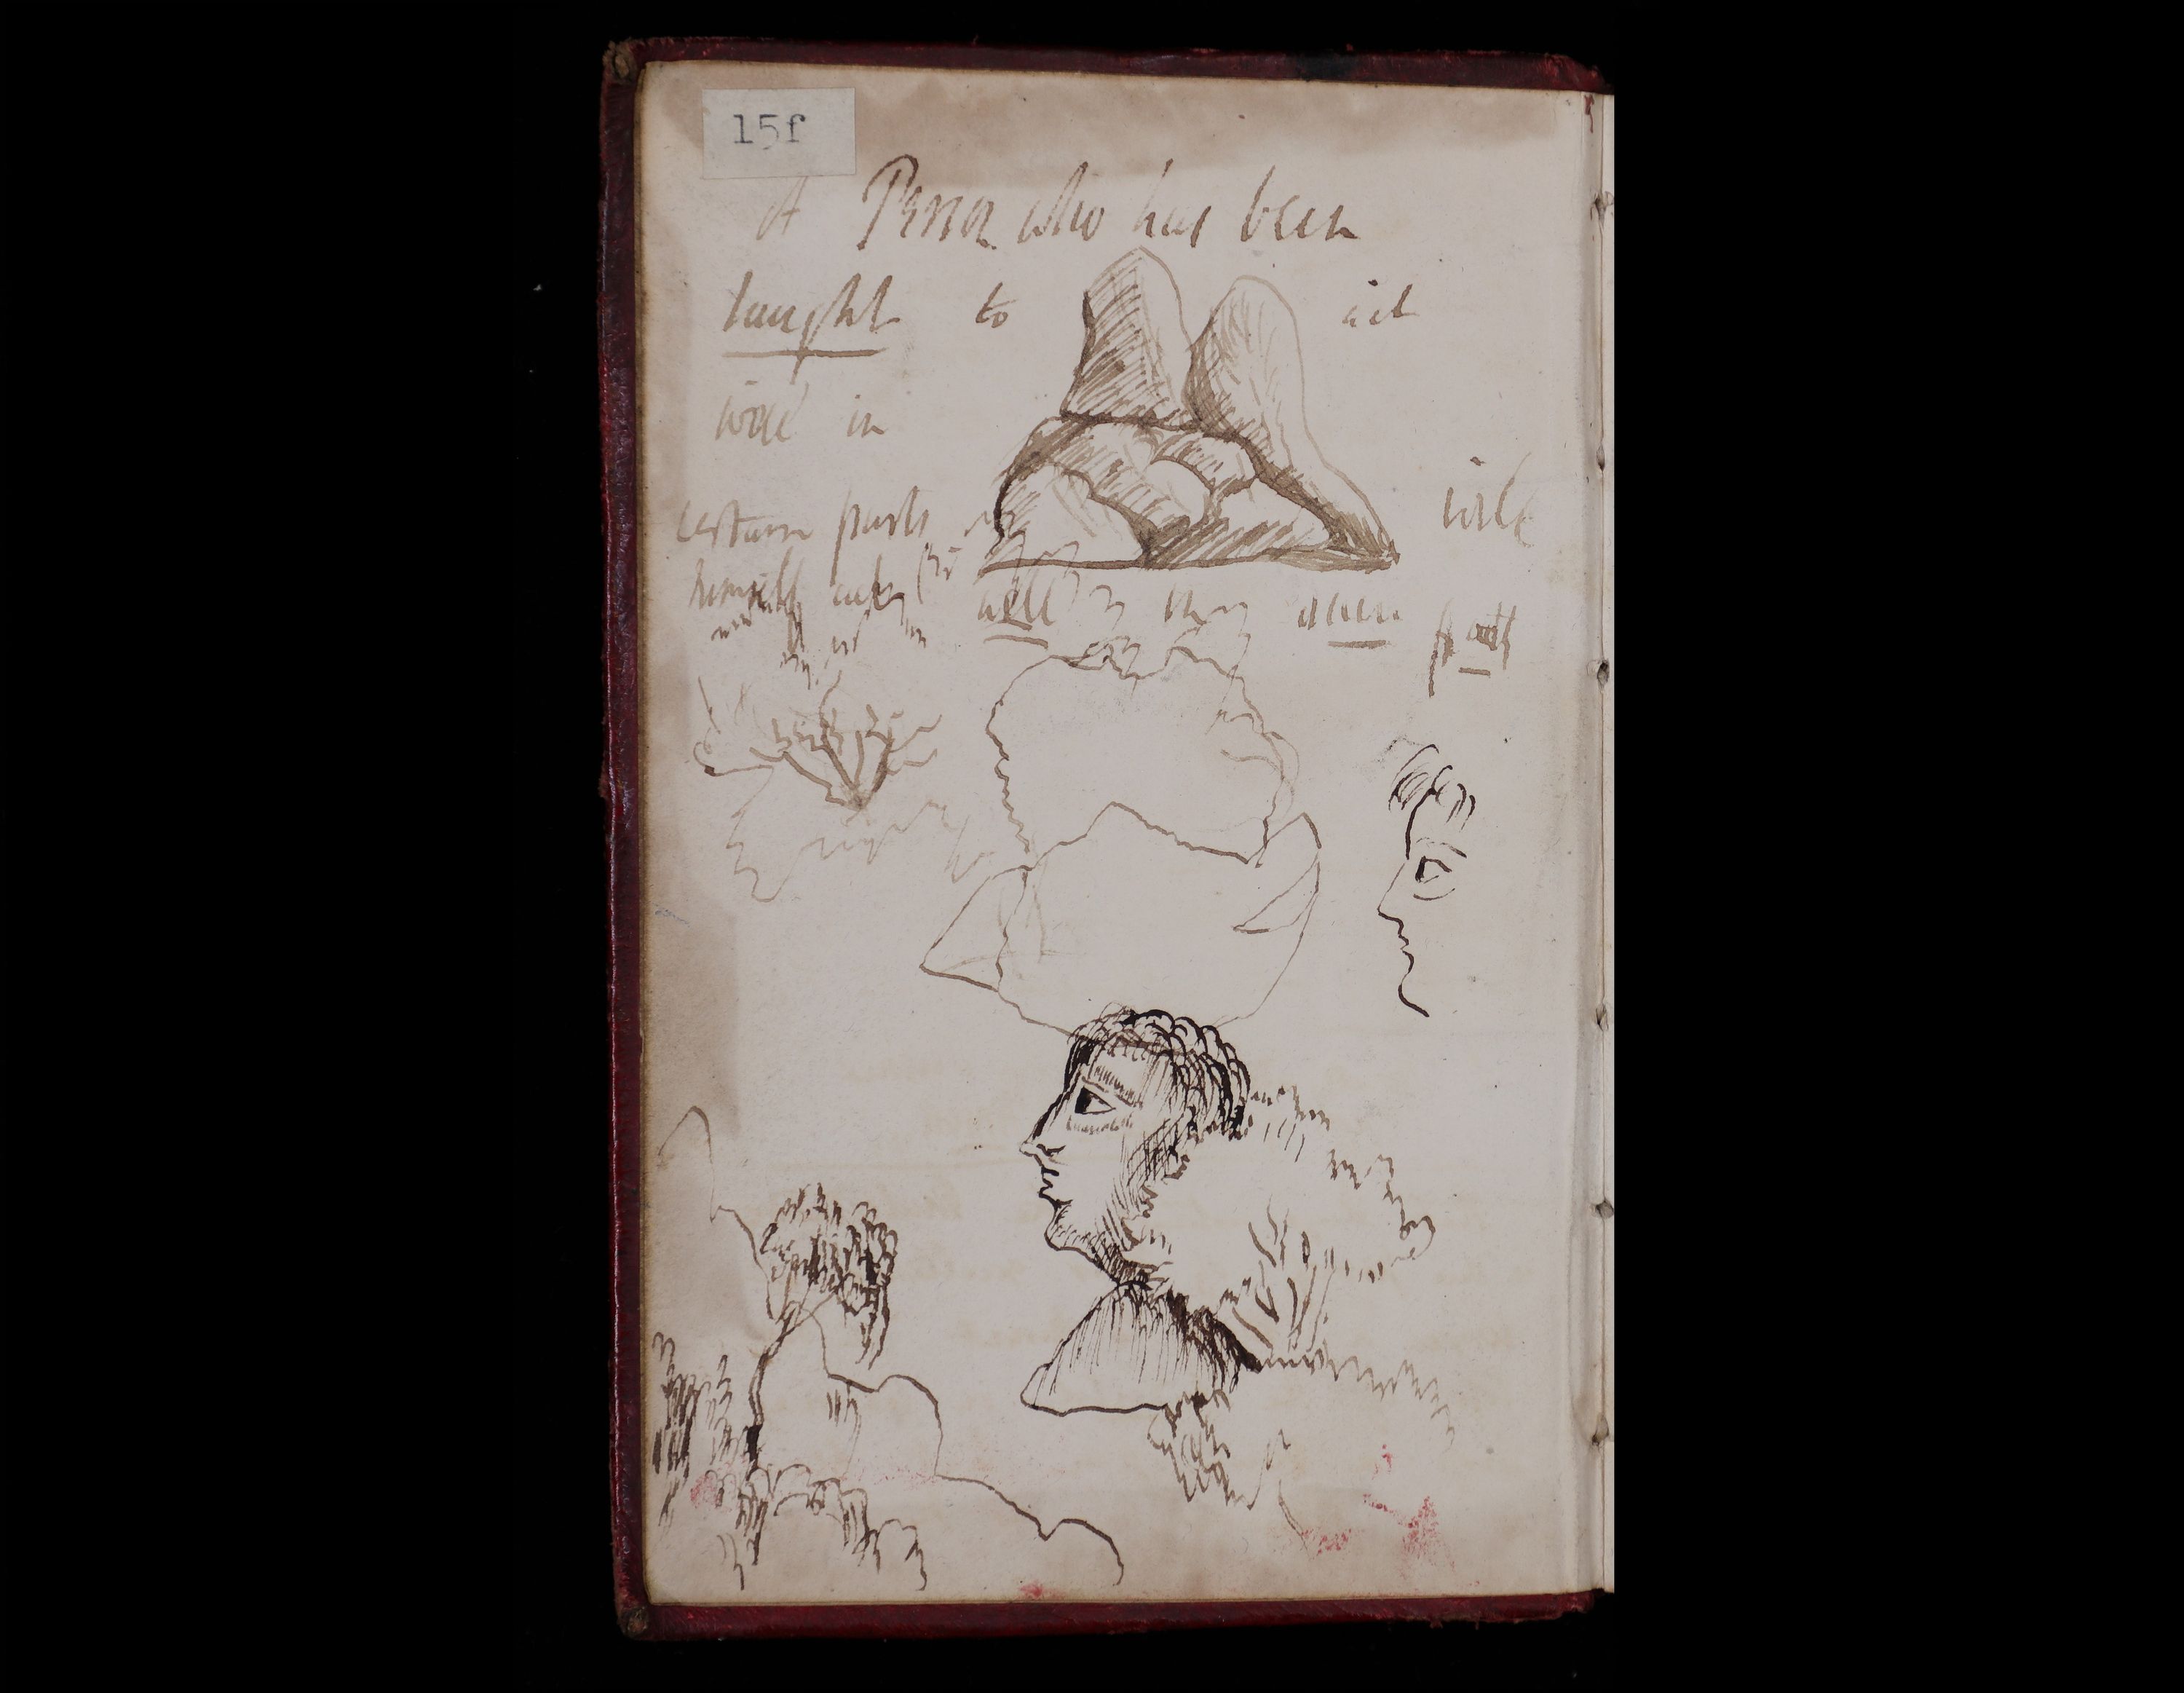 15f
A Person who has been
taught to act
well in
certain parts will
himself act well in any own part